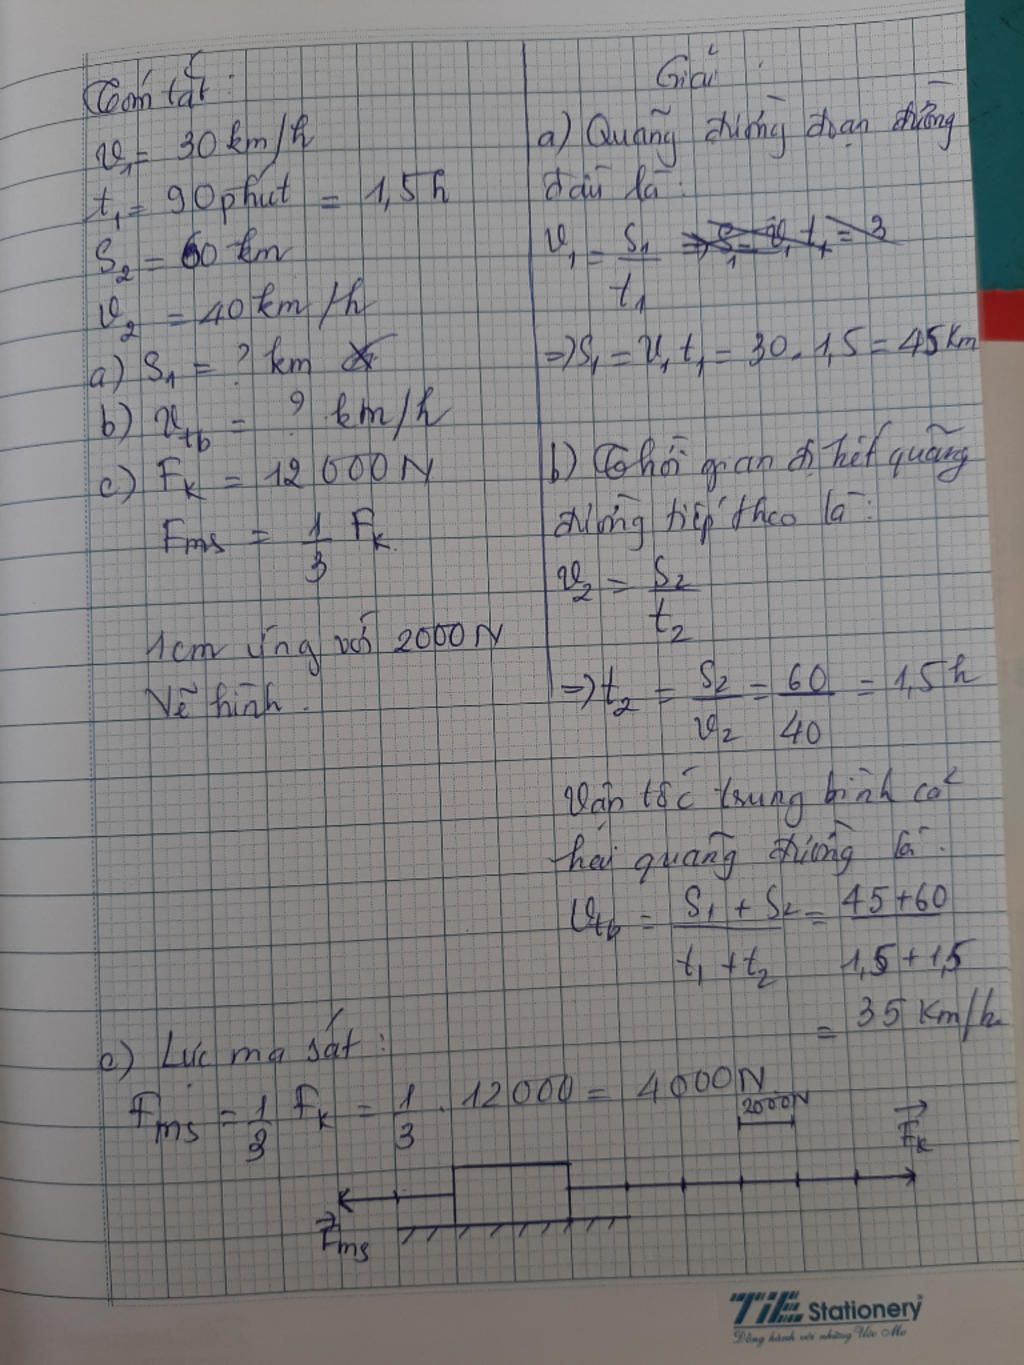 Tóm tắt:
v₁ = 30 km/h
t₁ = 90 phút = 1,5 h
S₂ = 60 km
v₂ = 40 km/h
a) S₁ = ? km
b) v_tb = ? km/h
c) F_K = 12 000 N
F_ms = 1/3 F_K
1cm ứng với 2000 N
Vẽ hình.
Giải:
a) Quãng đường đoạn đường
đầu là:
v₁ = S₁/t₁ ⇒ S₁ = v₁ t₁ = 3
⇒ S₁ = v₁ t₁ = 30 . 1,5 = 45 Km
b) Thời gian đi hết quãng
đường tiếp theo là:
v₂ = S₂/t₂
⇒ t₂ = S₂/v₂ = 60/40 = 1,5 h
Vận tốc trung bình cả
hai quãng đường là:
v_tb = (S₁ + S₂)/(t₁ + t₂) = (45+60)/(1,5+1,5)
= 35 Km/h
c) Lực ma sát:
F_ms = 1/3 F_K = 1/3 . 12 000 = 4 000 N
2000N
F_K
F_ms
TiE Stationery
Đồng hành với những Ước Mơ